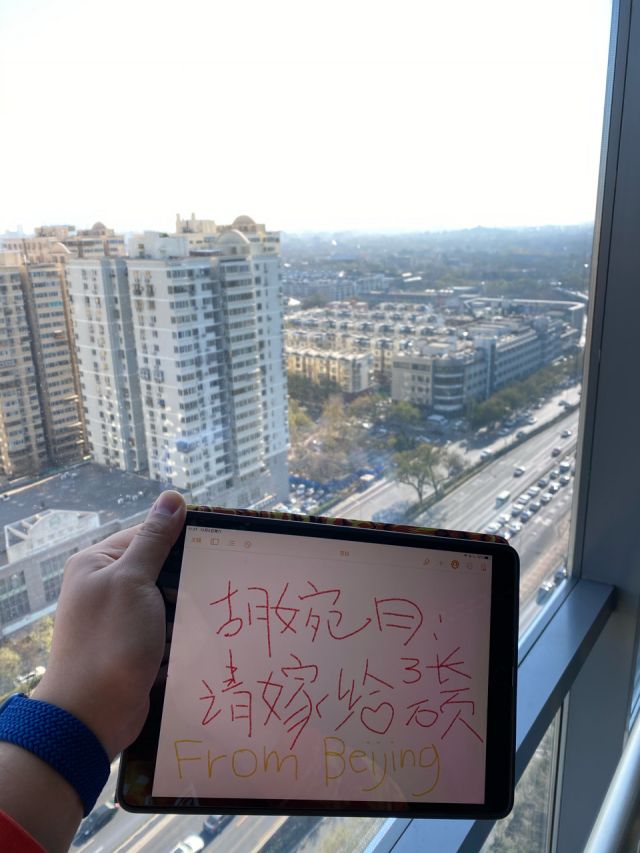 胡婉月:
请嫁给张硕
From Beijing